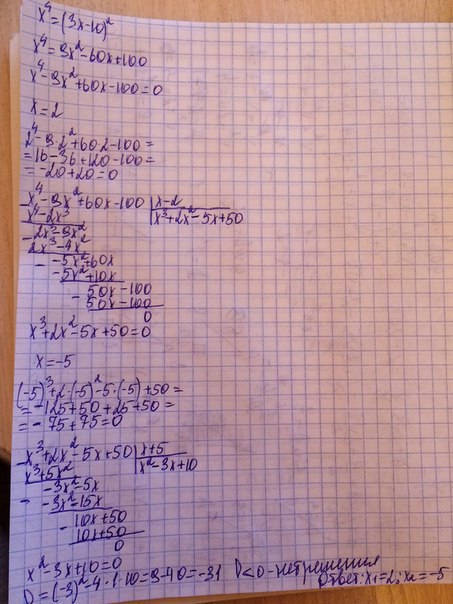 x⁴=(3x-10)²
x⁴=9x²-60x+100
x⁴-9x²+60x-100=0
x=2
2⁴-9·2²+60·2-100=
=16-36+120-100=
=-20+20=0
x⁴-9x²+60x-100 | x-2
x⁴-2x³ | x³+2x²-5x+50
-2x³-9x²
2x³-4x²
- -5x²+60x
-5x²+10x
- 50x-100
50x-100
0
x³+2x²-5x+50=0
x=-5
(-5)³+2·(-5)²-5·(-5)+50=
=-125+50+25+50=
=-75+75=0
x³+2x²-5x+50 | x+5
x³+5x² | x²-3x+10
-3x²-5x
- -3x²-15x
- 10x+50
10x+50
0
x²-3x+10=0
D=(-3)²-4·1·10=9-40=-31 D<0-нет решения
Ответ: x₁=2; x₂=-5